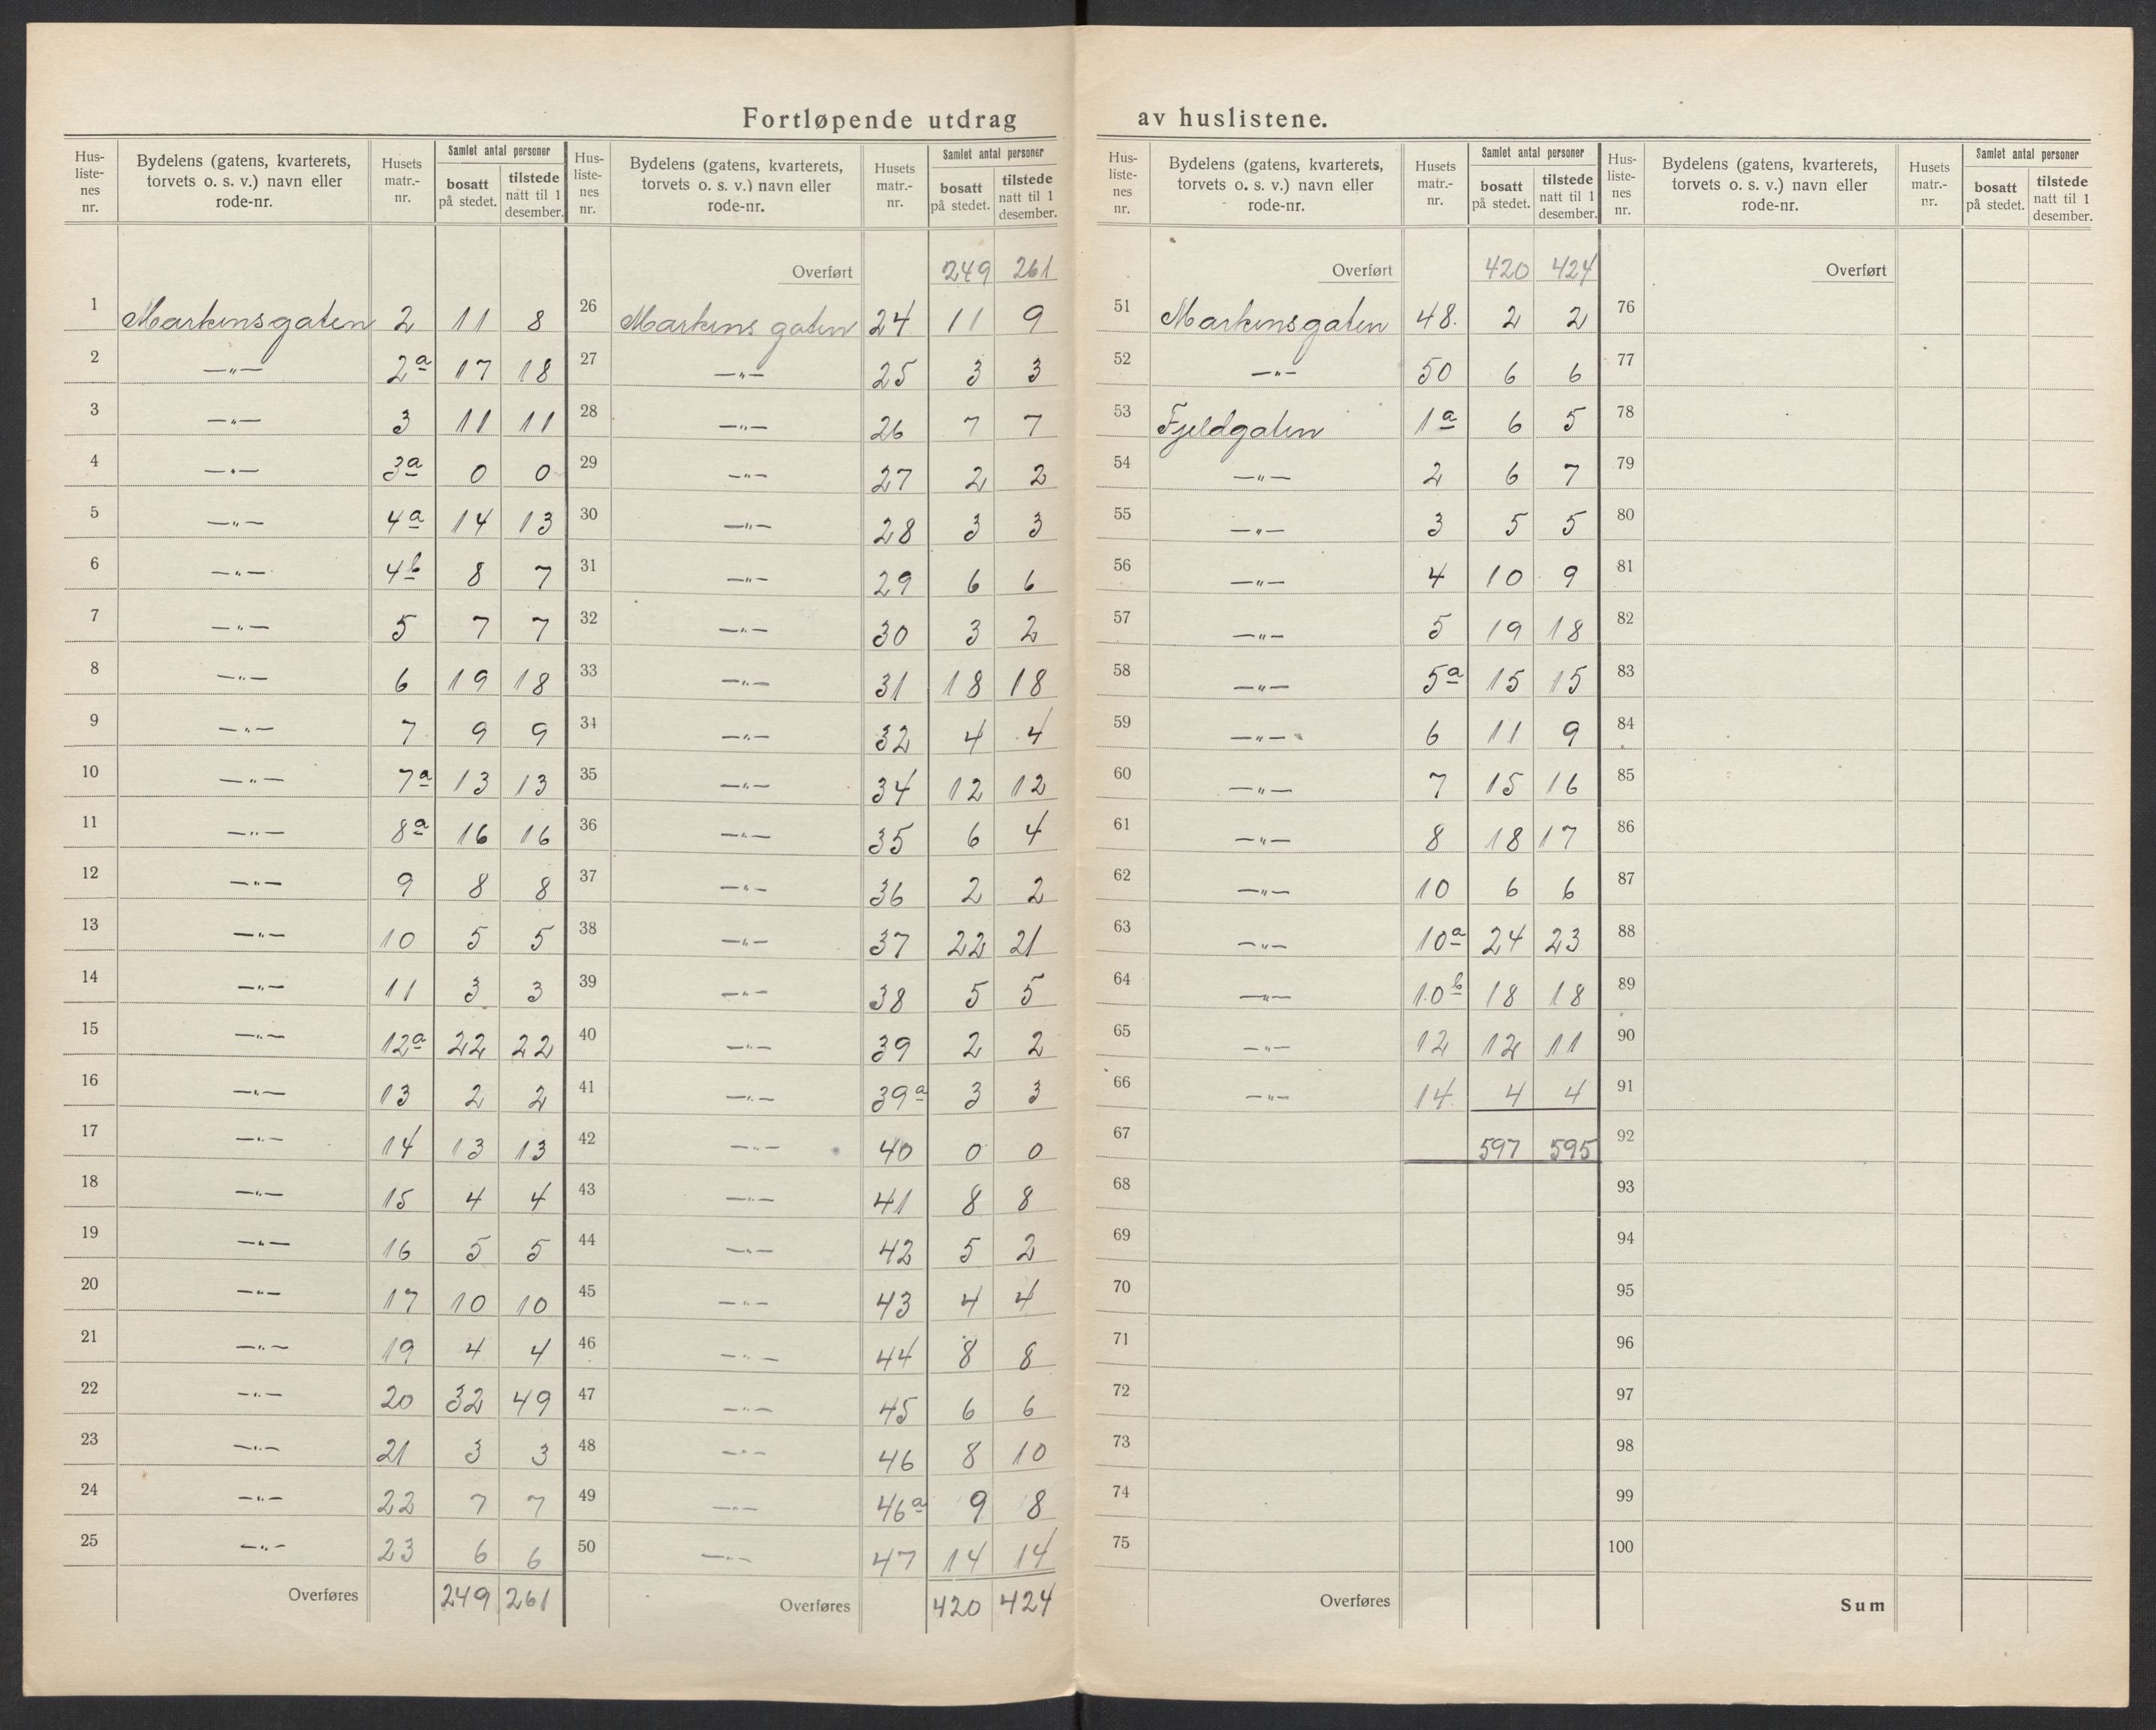 Fortløpende utdrag av huslistene.
Hus-listenes nr. | Bydelens (gatens, kvarterets, torvets o. s. v.) navn eller rode-nr. | Husets matr.-nr. | Samlet antal personer bosatt på stedet. | tilstede natt til 1 desember.
1 Markensgaten 2 11 8
2 —"— 2a 17 18
3 —"— 3 11 11
4 —"— 3a 0 0
5 —"— 4a 14 13
6 —"— 4b 8 7
7 —"— 5 7 7
8 —"— 6 19 18
9 —"— 7 9 9
10 —"— 7a 13 13
11 —"— 8a 16 16
12 —"— 9 8 8
13 —"— 10 5 5
14 —"— 11 3 3
15 —"— 12a 22 22
16 —"— 13 2 2
17 —"— 14 13 13
18 —"— 15 4 4
19 —"— 16 5 5
20 —"— 17 10 10
21 —"— 19 4 4
22 —"— 20 32 49
23 —"— 21 3 3
24 —"— 22 7 7
25 —"— 23 6 6
Overføres 249 261
Hus-listenes nr. | Bydelens (gatens, kvarterets, torvets o. s. v.) navn eller rode-nr. | Husets matr.-nr. | Samlet antal personer bosatt på stedet. | tilstede natt til 1 desember.
Overført 249 261
26 Markensgaten 24 11 9
27 —"— 25 3 3
28 —"— 26 7 7
29 —"— 27 2 2
30 —"— 28 3 3
31 —"— 29 6 6
32 —"— 30 3 2
33 —"— 31 18 18
34 —"— 32 4 4
35 —"— 34 12 12
36 —"— 35 6 4
37 —"— 36 2 2
38 —"— 37 22 21
39 —"— 38 5 5
40 —"— 39 2 2
41 —"— 39a 3 3
42 —"— 40 0 0
43 —"— 41 8 8
44 —"— 42 5 2
45 —"— 43 4 4
46 —"— 44 8 8
47 —"— 45 6 6
48 —"— 46 8 10
49 —"— 46a 9 8
50 —"— 47 14 14
Overføres 420 424
Hus-listenes nr. | Bydelens (gatens, kvarterets, torvets o. s. v.) navn eller rode-nr. | Husets matr.-nr. | Samlet antal personer bosatt på stedet. | tilstede natt til 1 desember.
Overført 420 424
51 Markensgaten 48. 2 2
52 —"— 50 6 6
53 Fjeldgaten 1a 6 5
54 —"— 2 6 7
55 —"— 3 5 5
56 —"— 4 10 9
57 —"— 5 19 18
58 —"— 5a 15 15
59 —"— 6 11 9
60 —"— 7 15 16
61 —"— 8 18 17
62 —"— 10 6 6
63 —"— 10a 24 23
64 —"— 10b 18 18
65 —"— 12 12 11
66 —"— 14 4 4
67 597 595
68
69
70
71
72
73
74
75
Overføres
Hus-listenes nr. | Bydelens (gatens, kvarterets, torvets o. s. v.) navn eller rode-nr. | Husets matr.-nr. | Samlet antal personer bosatt på stedet. | tilstede natt til 1 desember.
Overført
76
77
78
79
80
81
82
83
84
85
86
87
88
89
90
91
92
93
94
95
96
97
98
99
100
Sum